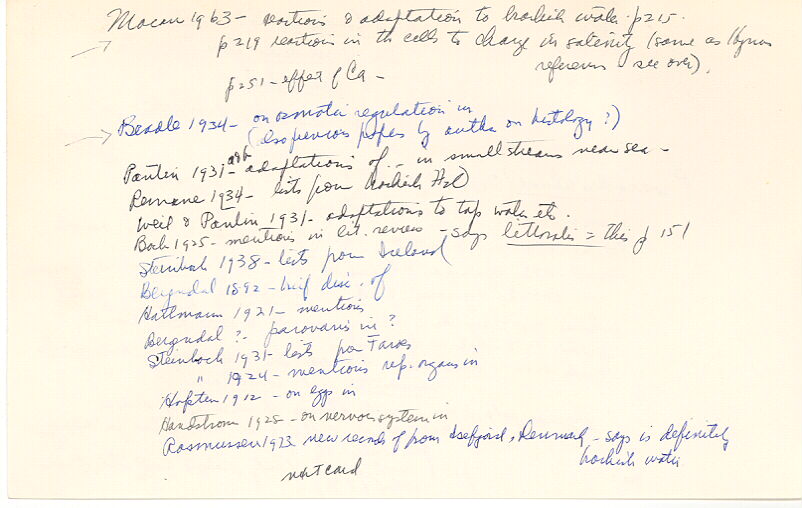 Macan 1963 - reactions & adaptation to brackish water p215.
p219 reactions in the cells to change in salinity (same as Hyman
reference see over).
p251 - effect of Ca -
Beadle 1934 - on osmotic regulation in
(also previous papers by author on histology?)
Pantin 1931 - adaptations of - in small streams near sea -
Remane 1934 - lists from brackish H2O
Weil & Pantin 1931 - adaptations to tap water etc.
Bock 1925 - mentions in lit. review - says littoralis = this p 151
Steinbock 1938 - lists from Iceland
Bergendal 1892 - brief disc. of
Hallmann 1921 - mentions
Bergendal ? - parovaris in ?
Steinbock 1931 - lists from Faroes
" 1924 - mentions rep. organs in
Hofsten 1912 - on eggs in
Hanstrom 1928 - on nervous system in
Rasmussen 1973 new records of from Isefjord, Denmark - says is definitely
brackish water
next card